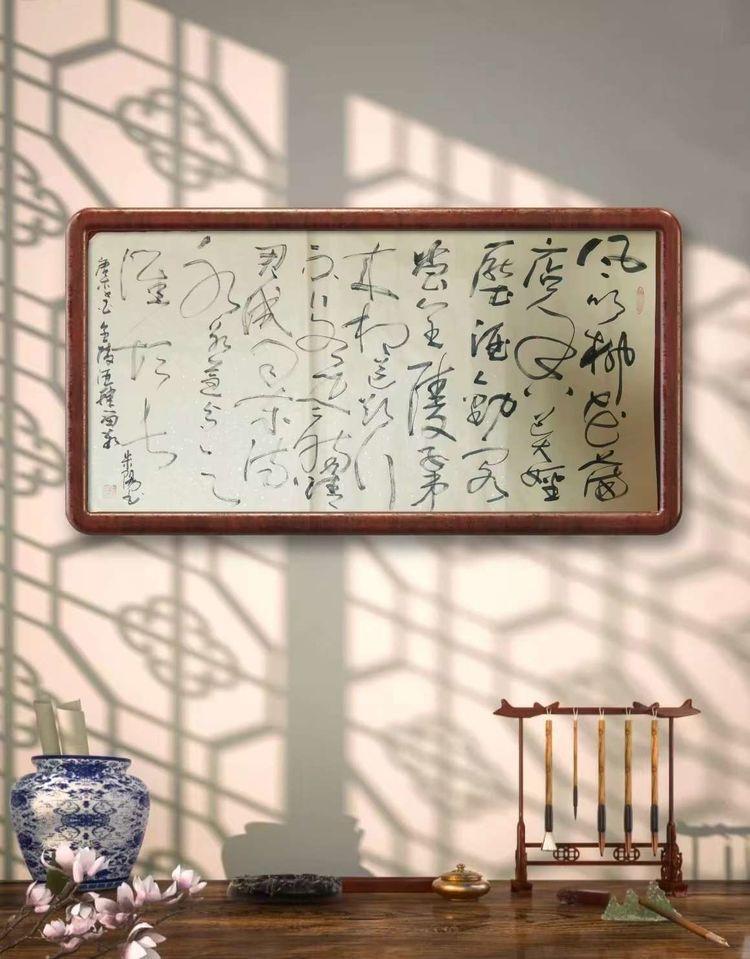 风吹柳花满
店香吴姬
压酒劝客
尝金陵子弟
来相送欲行
不行各尽觞请
君试问东流
水别意与之
谁短长
唐李白 金陵酒肆留别